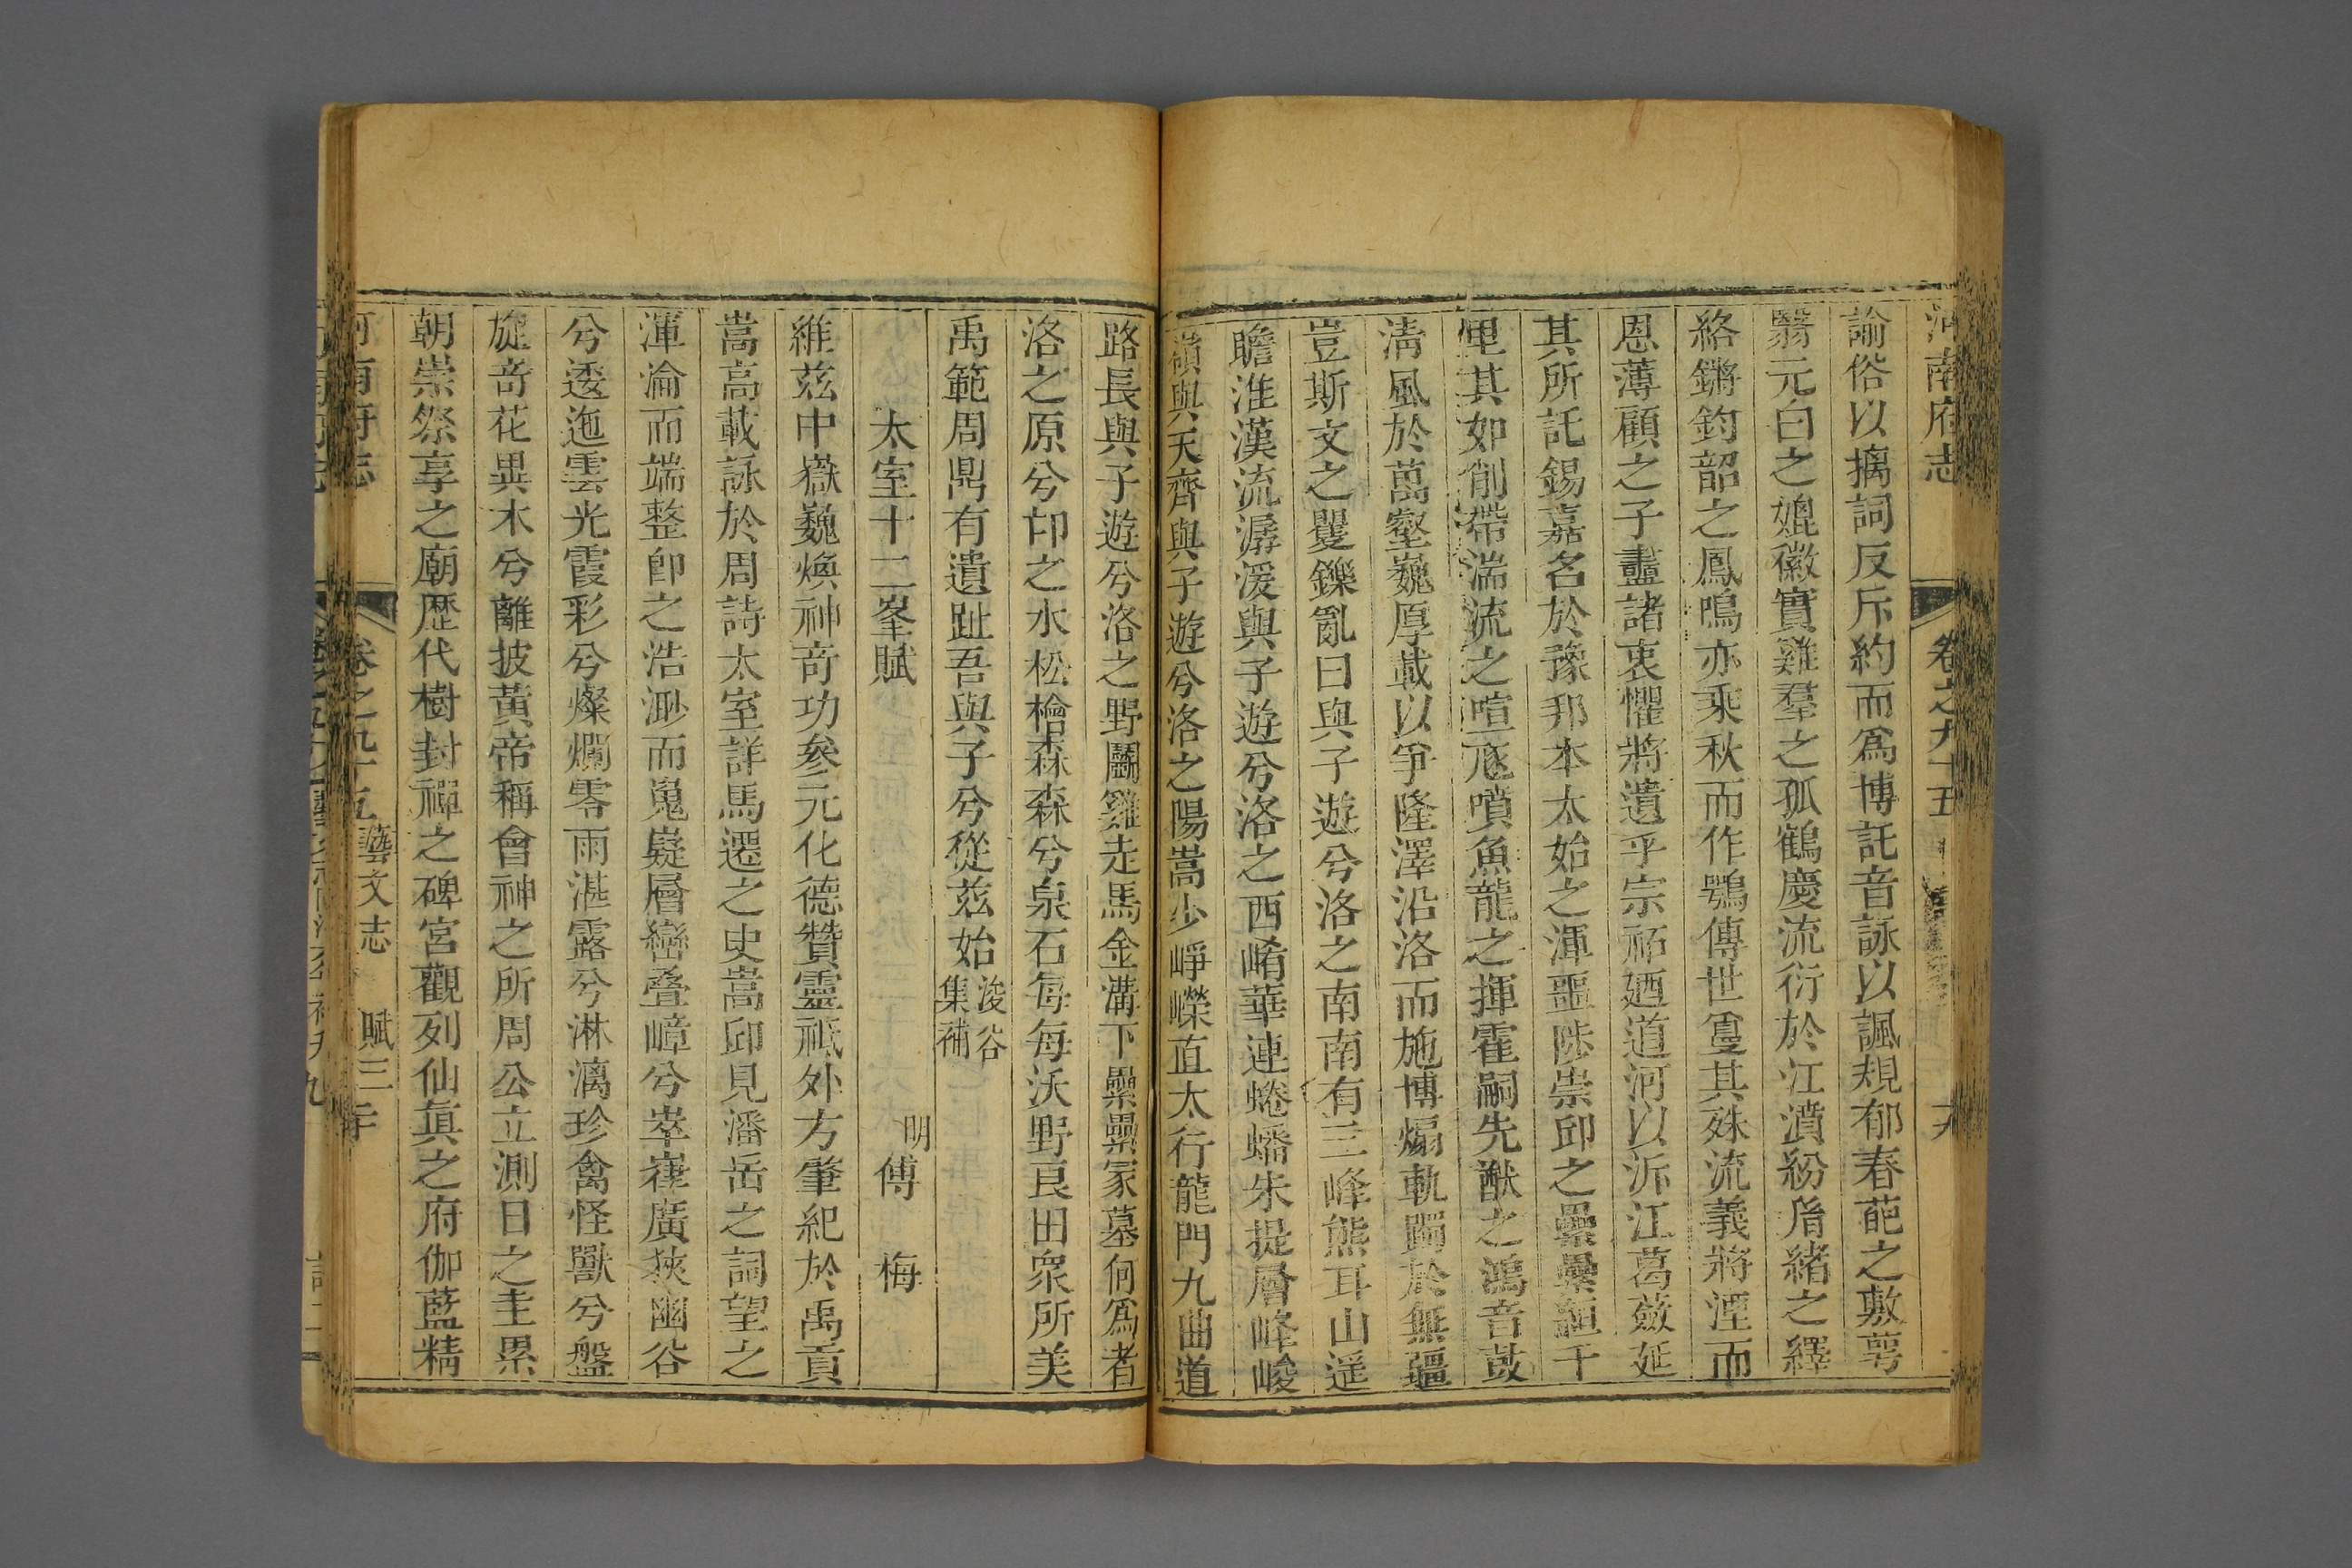 河南府志 卷之九十五
諭俗以摛詞反斥約而爲博託音詠以諷規郁春葩之敷萼
翳元白之媲徽實雞羣之孤鶴慶流衍於江濆紛脩緒之繹
絡鏘鈞韶之鳳鳴亦乘秋而作鶚傳世亹其殊流義將湮而
恩薄顧之子盡諸衷懼將遺乎宗祏廼道河以泝江葛蔹延
其所託錫嘉名於豫邦本太始之渾噩陟崇邱之纍纍緬千
里其如削帶湍流之喧豗噴魚龍之揮霍嗣先猷之鴻音鼓
淸風於萬壑巍厚載以爭隆澤沿洛而施博煽軌躅於無疆
豈斯文之矍鑠亂曰與子遊兮洛之南南有三峰熊耳山遥
瞻淮漢流潺湲與子遊兮洛之西崤華連蜷蟠朱提層峰峻
嶺與天齊與子遊兮洛之陽嵩少崢嶸直太行龍門九曲道
路長與子遊兮洛之野鬭雞走馬金溝下纍纍冢墓何爲者
洛之原兮卬之水松檜森森兮泉石每每沃野良田衆所美
禹範周鼎有遺趾吾與子兮從茲始 浚谷集補
太室十二峯賦 明傅 梅
維茲中嶽巍煥神奇功參元化德贊靈祗外方肇紀於禹貢
嵩高載詠於周詩太室詳馬遷之史嵩邱見潘岳之詞望之
渾淪而端整卽之浩渺而嵬嶷層巒叠嶂兮崒嵂廣狹幽谷
兮逶迤雲光霞彩兮燦爛零雨湛露兮淋漓珍禽怪獸兮盤
旋奇花異木兮離披黃帝稱會神之所周公立測日之圭累
朝崇祭享之廟歷代樹封禪之碑宮觀列仙眞之府伽藍精
河南府志 卷之九十五 藝文志 賦三